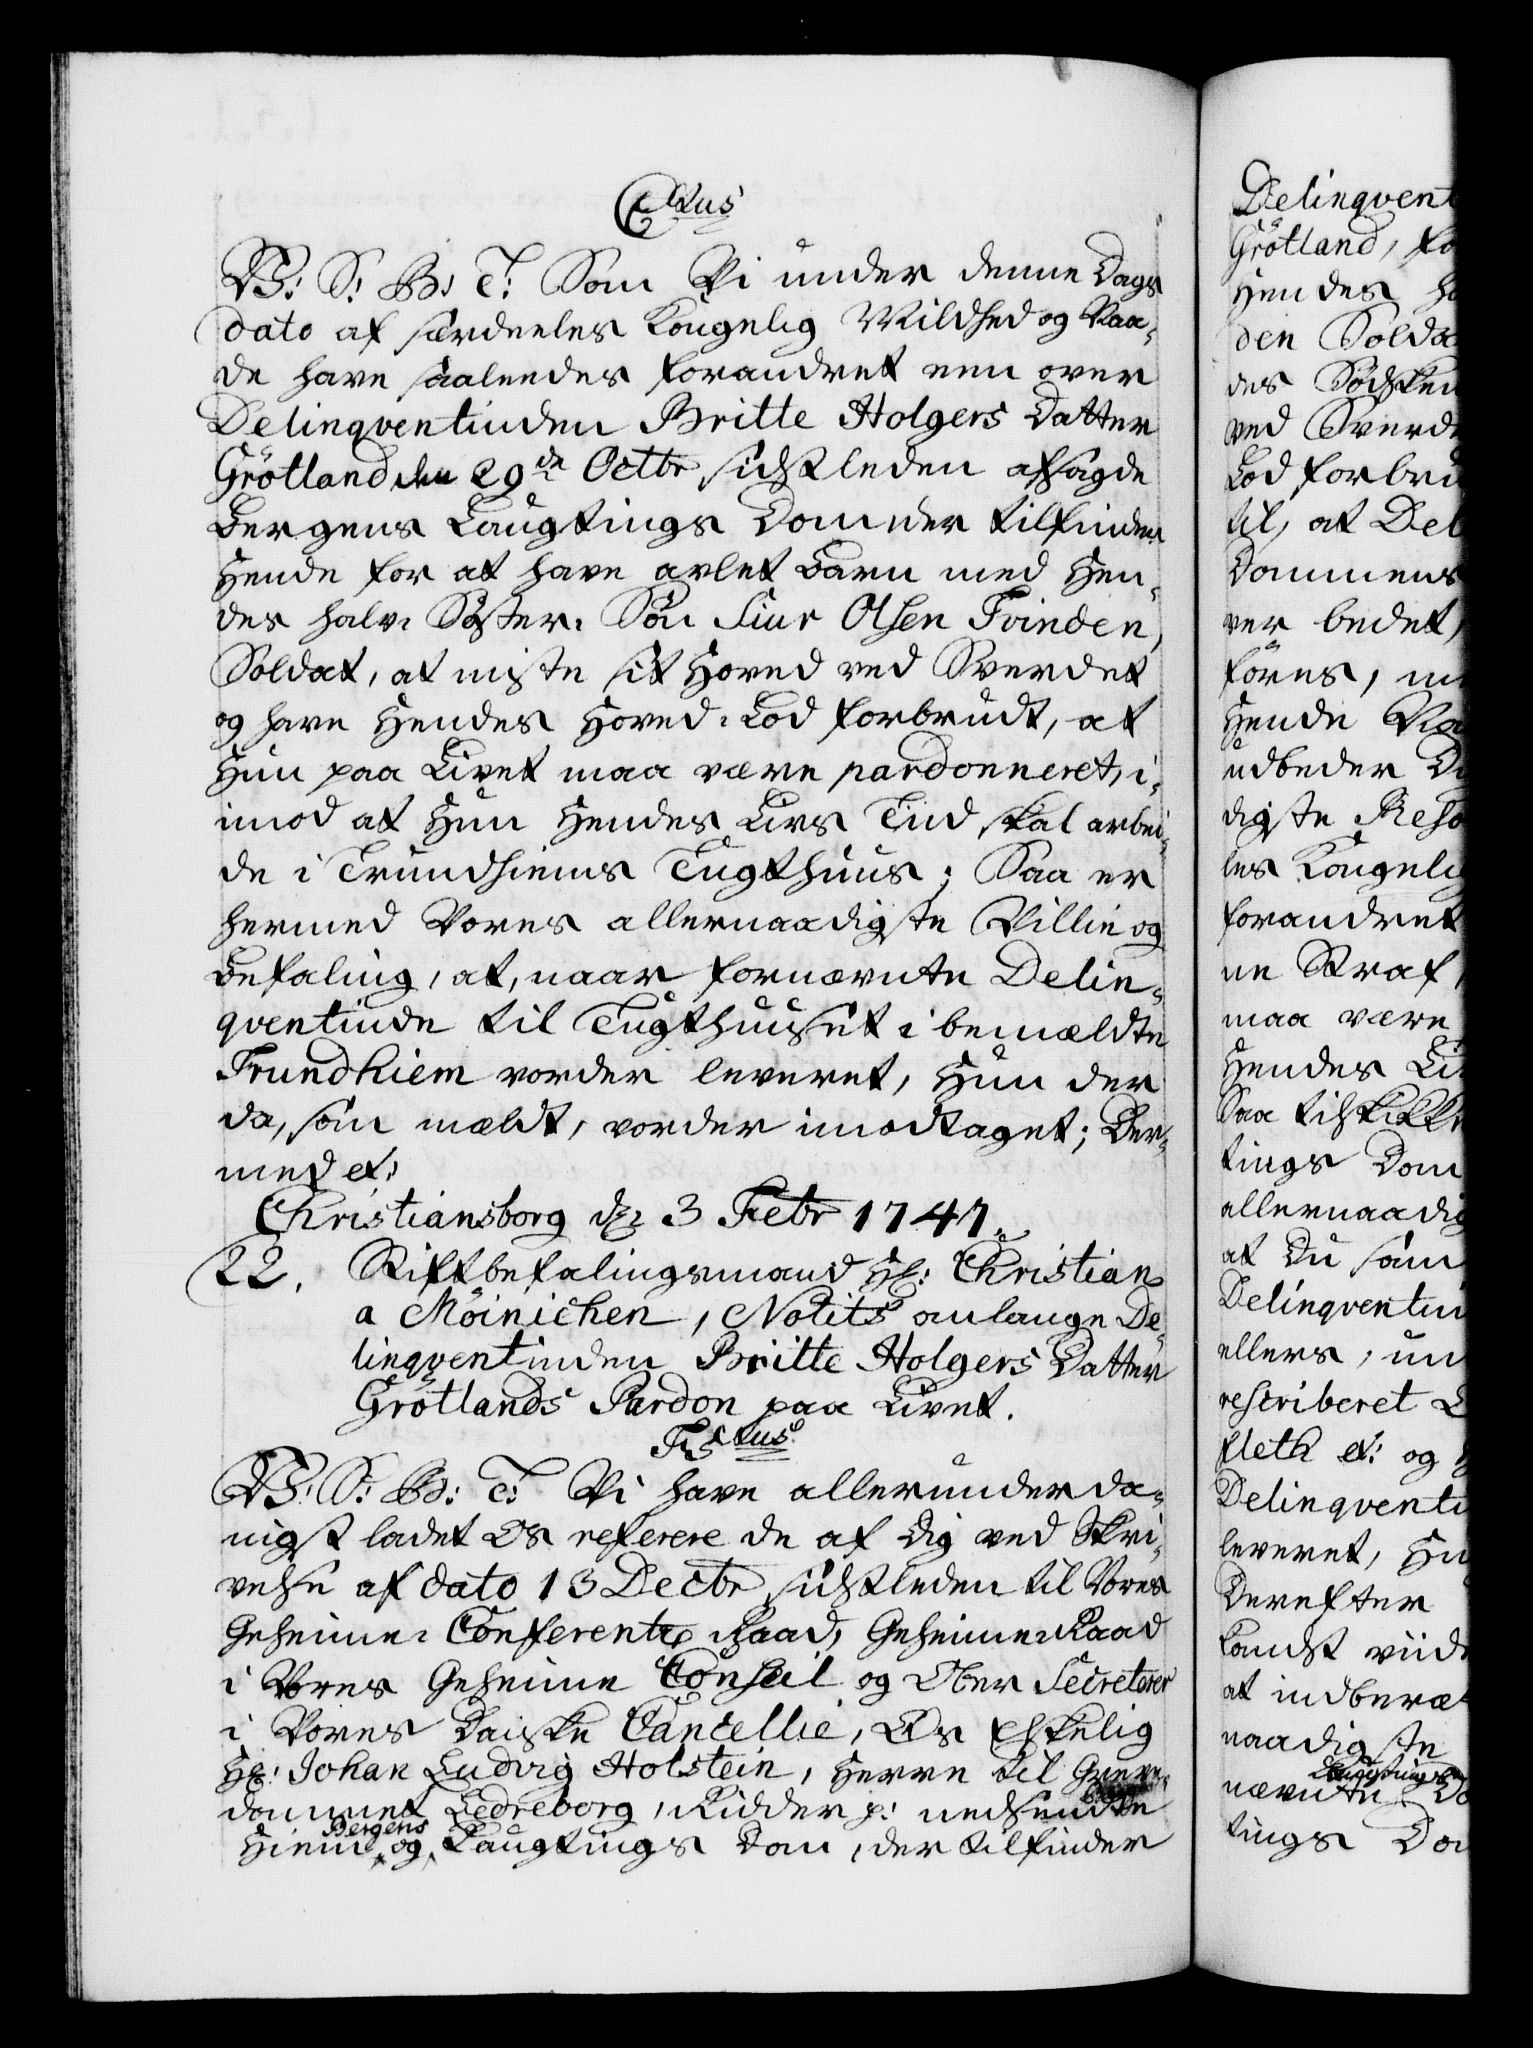 C6tus
V: S: G: T: Som Vi under denne Dags
dato af særdeeles Kongelig Mildhed og Naa-
de have saaleedes forandret een over
Delinqventinden Britte Holgers Datter
Grötland den 29de Octbr sidstleden afsagde
Bergens Laugtings Dom, der tilfinder
Hende for at have avlet Barn med Hen-
des halv-Söster-Sön Siur Olsen Tvinden,
Soldat, at miste sit Hoved ved Sverdet
og have Hendes Hoved-Lod forbrudt, at
Hun paa Livet maa være pardonneret, i-
imod at Hun Hendes Livs Tiid skal arbei-
de i Trundhiems Tugthuus; Saa er
hermed Vores allernaadigste Villie og
Befaling, at, naar fornævnte Delin-
qventinde til Tugthuuset i bemældte
Trundhiem vorder leveret, Hun der
da, som mældt, vorder imodtaget; Der-
med et:
Christiansborg d: 3 Febr 1747.
22. Stiftbefalingsmand Hr: Christian
a Möinichen, Notits anlange De-
linqventinden Britte Holgers Datter
Grötlands Pardon paa Livet.
Frs tus
V: S: G: T: Vi have allerunderda-
nigst ladet Os referere de af Dig ved Skri-
velse af dato 13 Dectr sidstleden til Vores
Geheime-Conferentz-Raad, Geheime-Raad
i Vores Geheime Conseil og Ober Secreterer
i Vores Danske Cancellie, Os Elskelig
Hr: Johan Ludvig Holstein, Herre til Grev-
dommet Ledreborg, Ridder p: nedsendte
Hiem- og Bergens Laugtings Dom, der tilfinder
Delinqvent
Grötland, fo
Hendes ha
den Solda
des Södsken
ved Sverde
Lod forbru
til, at Del
Dommens
ver bedet,
föres, m
Hende Na
udbeder D
digste Reso
les Kongelig
forandret
ne Straf,
maa være
Hendes Li
Saa tilskikke
tings Dom
allernaadig
at Du som
Delinqventin
ellers, un
rescriberet
fleth et: og H
Delinqventi
leveret, Hu
Derefter
Landst viide
at indberæ
naadigste
nævnte Laugtings Do
tings Dom